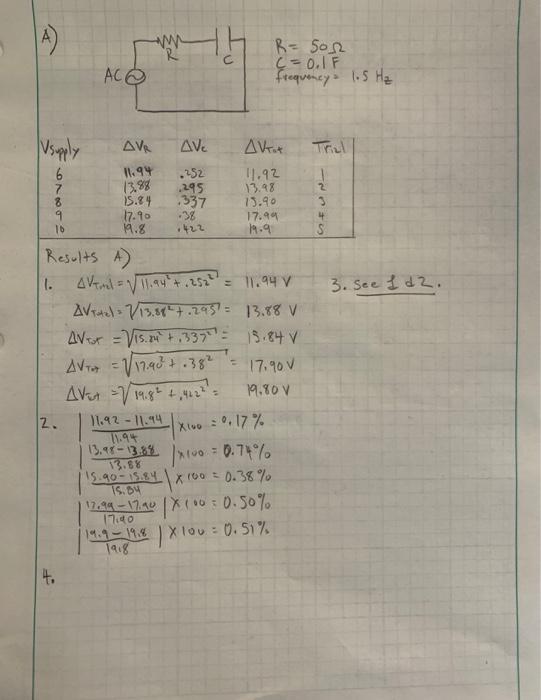 A)
R
C
AC
R = 50Ω
C = 0.1 F
frequency = 1.5 Hz
Vsupply ΔVR ΔVc ΔVTot Trial
6 11.94 .252 11.92 1
7 13.88 .295 13.98 2
8 15.84 .337 15.90 3
9 17.90 .38 17.99 4
10 19.8 .422 19.9 5
Results A)
1. ΔVTotal = √11.94² + .252² = 11.94 V
3. See 1 & 2.
ΔVTotal = √13.88² + .295² = 13.88 V
ΔVTot = √15.84² + .337² = 15.84 V
ΔVTot = √17.90² + .38² = 17.90 V
ΔVTot = √19.8² + .422² = 19.80 V
2. | 11.92 - 11.94 / 11.94 | x100 = 0.17%
| 13.98 - 13.88 / 13.88 | x100 = 0.74%
| 15.90 - 15.84 / 15.84 | x100 = 0.38%
| 17.99 - 17.90 / 17.90 | x100 = 0.50%
| 19.9 - 19.8 / 19.8 | x100 = 0.51%
4.